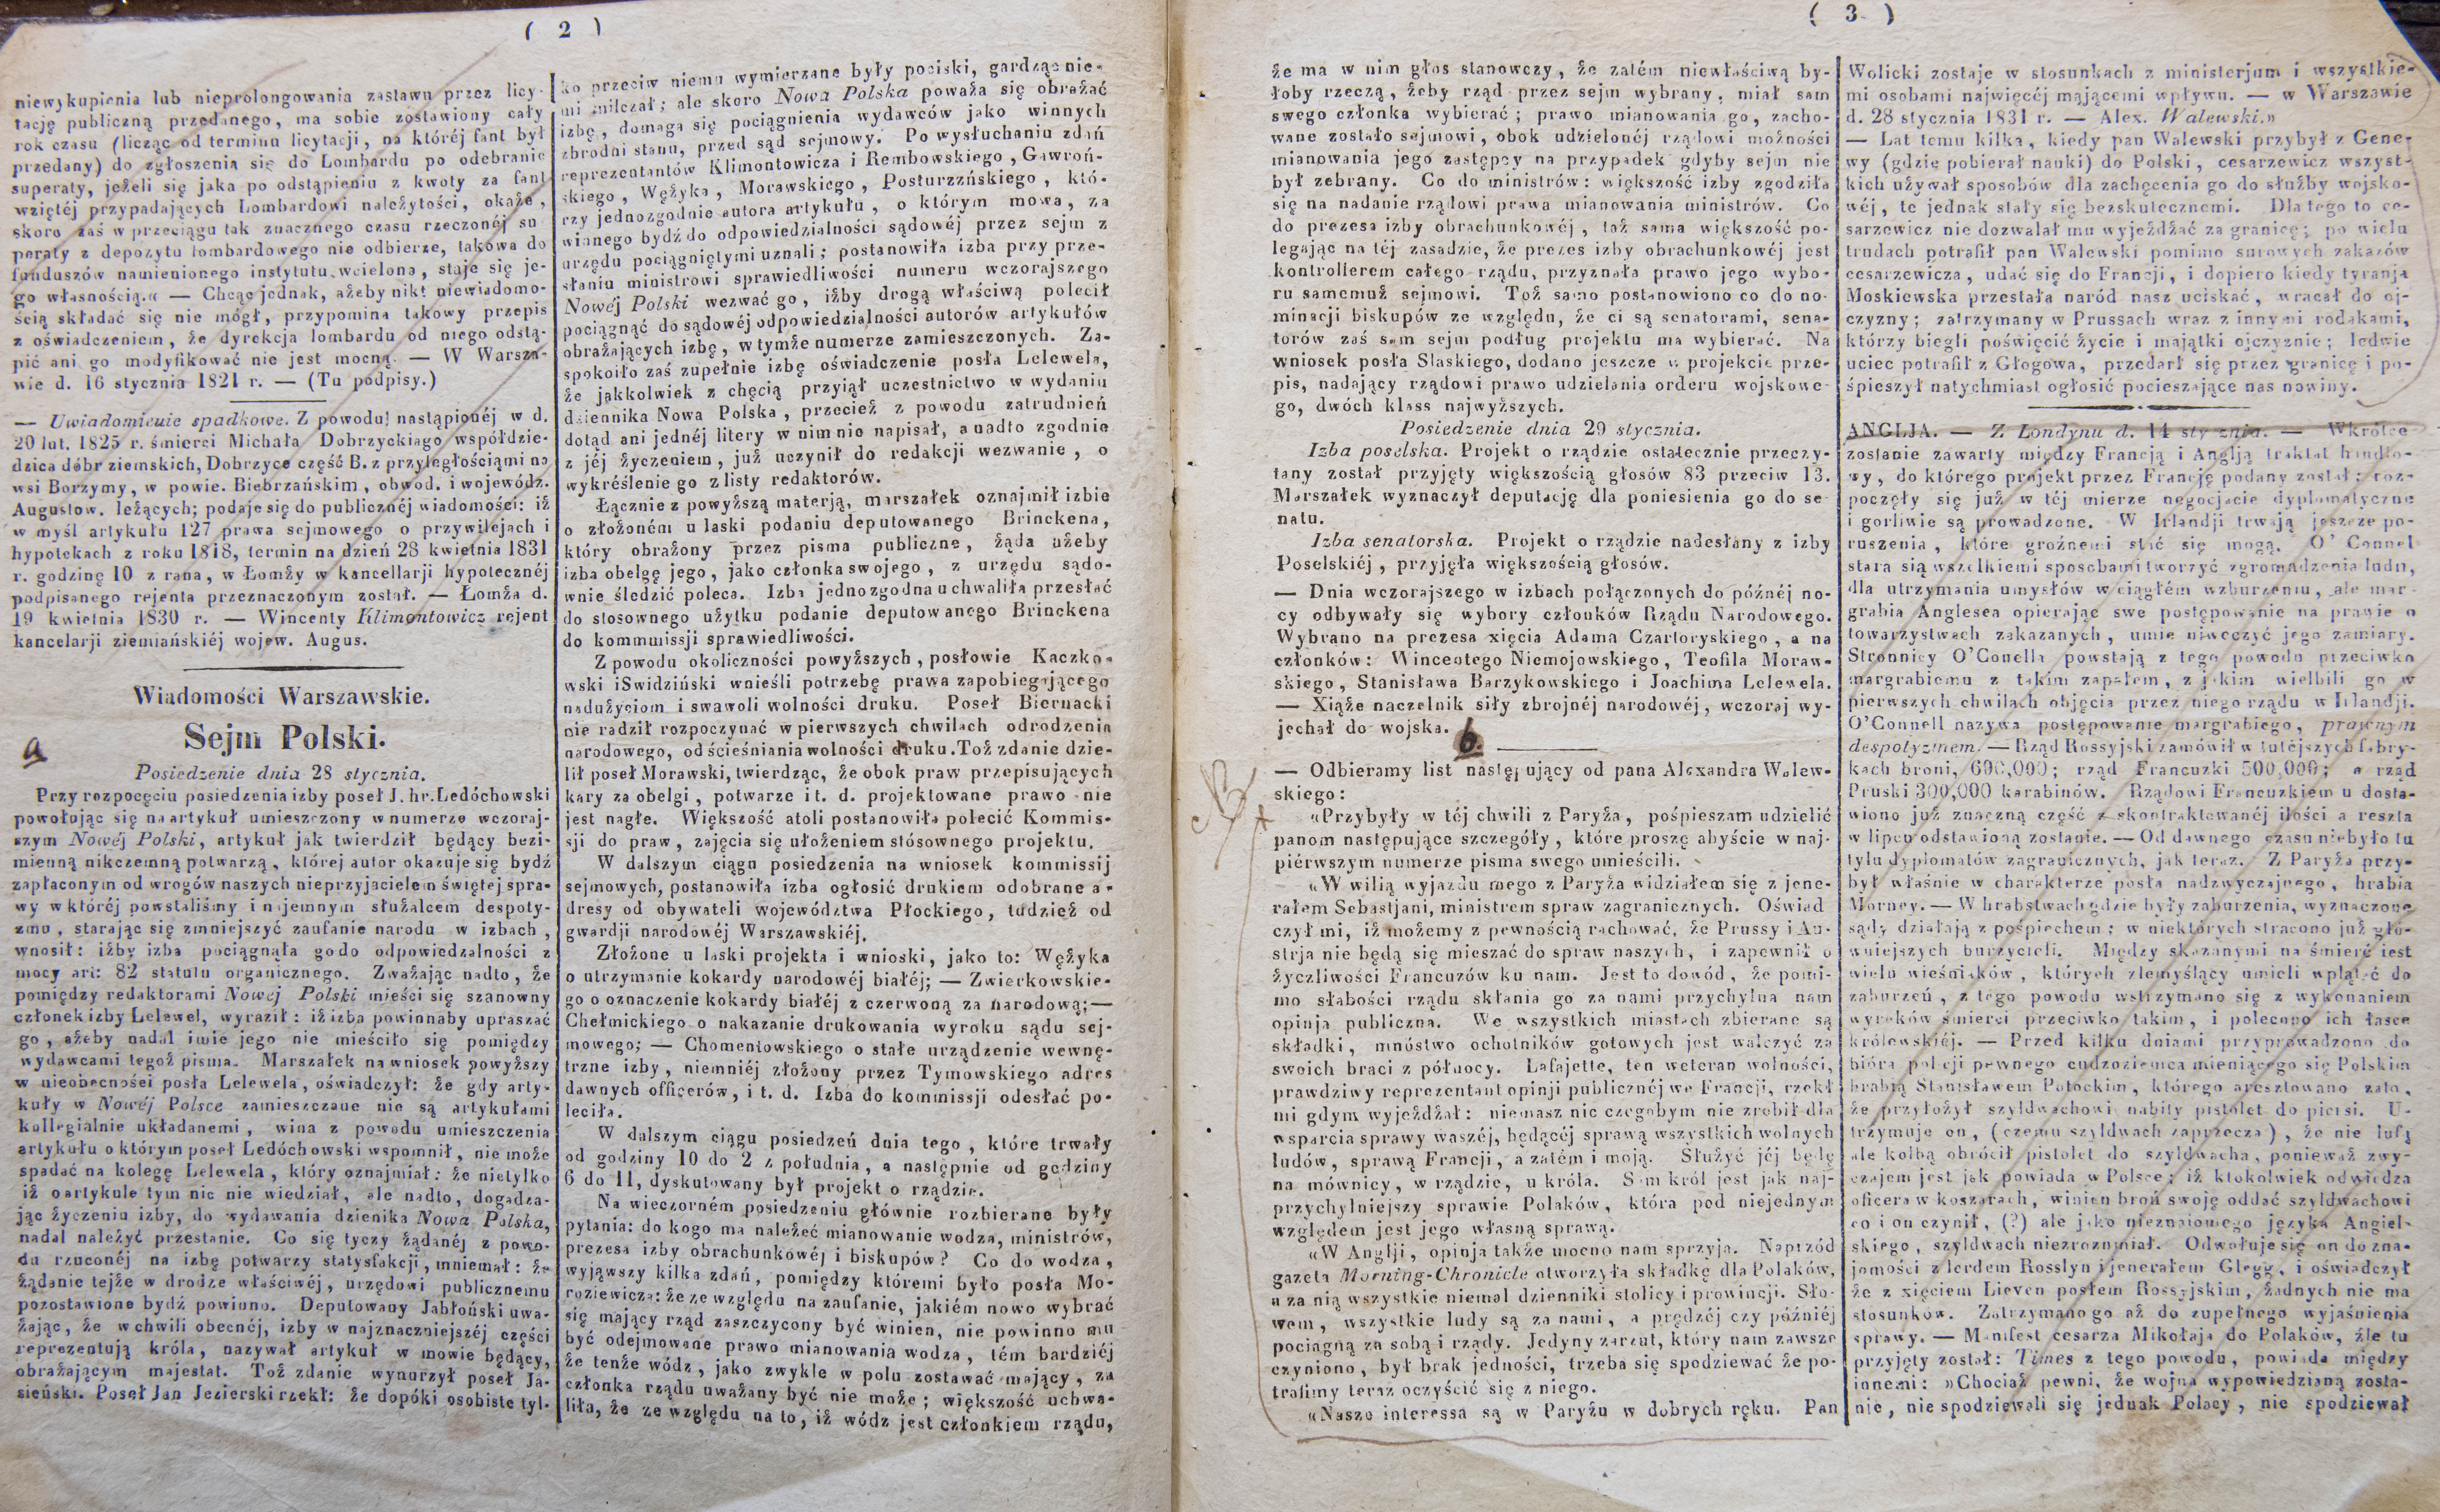 ( 2 )
niewykupienia lub nieprolongowania zastawu przez licy-
tację publiczną przedanego, ma sobie zostawiony cały
rok czasu (licząc od terminu licytacji, na któréj fant był
przedany) do zgłoszenia się do Lombardu po odebranie
superaty, jeżeli się jaka po odstąpieniu z kwoty za fant
wziętéj przypadających Lombardowi należytości, okaże,
skoro zaś w przeciągu tak znacznego czasu rzeczonéj su
peraty z depozytu lombardowego nie odbierze, takowa do
funduszów namienionego instytutu wcielona, staje się je-
go własnością.« — Chcąc jednak, ażeby nikt niewiadomo-
ścią składać się nie mógł, przypomina takowy przepis
z oświadczeniem, że dyrekcja lombardu od niego odstą-
pić ani go modyfikować nie jest mocną. — W Warsza-
wie d. 16 stycznia 1821 r. — (Tu podpisy.)
— Uwiadomienie spadkowe. Z powodu nastąpionéj w d.
20 lut. 1825 r. śmierci Michała Dobrzyckiago współdzie-
dzica dóbr ziemskich, Dobrzyce część B. z przyległościami na
wsi Borzymy, w powie. Biebrzańskim, obwod. i wojewódz.
Augustow. leżących; podaje się do publicznéj wiadomości: iż
w myśl artykułu 127 prawa sejmowego o przywilejach i
hypotekach z roku 1818, termin na dzień 28 kwietnia 1831
r. godzinę 10 z rana, w Łomży w kancellarji hypotecznéj
podpisanego rejenta przeznaczonym został. — Łomża d.
19 kwietnia 1830 r. — Wincenty Klimontowicz rejent
kancelarji ziemiańskiéj wojew. Augus.
Wiadomości Warszawskie.
Sejm Polski.
a
Posiedzenie dnia 28 stycznia.
Przy rozpoczęciu posiedzenia izby poseł J. hr. Ledóchowski
powołując się na artykuł umieszczony w numerze wczoraj-
szym Nowéj Polski, artykuł jak twierdził będący bezi-
mienną nikczemną potwarzą, której autor okazuje się bydź
zapłaconym od wrogów naszych nieprzyjacielem świętej spra-
wy w któréj powstaliśmy i najemnym służalcem despoty-
zmu, starając się zmniejszyć zaufanie narodu w izbach,
wnosił: iżby izba pociągnąła go do odpowiedzalności z
mocy art: 82 statutu organicznego. Zważając nadto, że
pomiędzy redaktorami Nowej Polski mieści się szanowny
członek izby Lelewel, wyraził: iż izba powinnaby upraszać
go, ażeby nadal imie jego nie mieściło się pomiędzy
wydawcami tegoż pisma. Marszałek na wniosek powyższy
w nieobecności posła Lelewela, oświadczył: że gdy arty-
kuły w Nowéj Polsce zamieszczane nie są artykułami
kollegialnie układanemi, wina z powodu umieszczenia
artykułu o którym poseł Ledóchowski wspomnił, nie może
spadać na kolegę Lelewela, który oznajmiał: że nietylko
iż o artykule tym nic nie wiedział, ale nadto, dogadza-
jąc życzeniu izby, do wydawania dzienika Nowa Polska,
nadal należyć przestanie. Co się tyczy żądanéj z powo-
du rzuconéj na izbę potwarzy statysfakcji, mniemał: że
żądanie tejże w drodze właściwéj, urzędowi publicznemu
pozostawione bydź powinno. Deputowany Jabłoński uwa-
żając, że w chwili obecnéj, izby w najznaczniejszéj części
reprezentują króla, nazywał artykuł w mowie będący,
obrażającym majestat. Toż zdanie wynurzył poseł Ja-
sieński. Poseł Jan Jezierski rzekł: że dopóki osobiste tyl-
ko przeciw niemu wymierzane były pociski, gardząc nie-
mi milczał; ale skoro Nowa Polska poważa się obrażać
izbę, domaga się pociągnienia wydawców jako winnych
zbrodni stanu, przed sąd sejmowy. Po wysłuchaniu zdań
reprezentantów Klimontowicza i Rembowskiego, Gawroń-
skiego, Wężyka, Morawskiego, Posturzzńskiego, któ-
rzy jednozgodnie autora artykułu, o którym mowa, za
winnego bydź do odpowiedzialności sądowéj przez sejm z
urzędu pociągniętymi uznali; postanowiła izba przy prze-
słaniu ministrowi sprawiedliwości numeru wczorajszego
Nowéj Polski wezwać go, iżby drogą właściwą polecił
pociągnąć do sądowéj odpowiedzialności autorów artykułów
obrażających izbę, w tymże numerze zamieszczonych. Za-
spokoiło zaś zupełnie izbę oświadczenie posła Lelewela,
że jakkolwiek z chęcią przyiął uczestnictwo w wydaniu
dziennika Nowa Polska, przecież z powodu zatrudnień
dotąd ani jednéj litery w nim nie napisał, a nadto zgodnie
z jéj życzeniem, już uczynił do redakcji wezwanie, o
wykréślenie go z listy redaktorów.
Łącznie z powyższą materją, marszałek oznajmił izbie
o złożoném u laski podaniu deputowanego Brinckena,
który obrażony przez pisma publiczne, żąda ażeby
izba obelgę jego, jako członka swojego, z urzędu sądo-
wnie śledzić poleca. Izba jednozgodna uchwaliła przesłać
do stosownego użytku podanie deputowanego Brinckena
do kommissji sprawiedliwości.
Z powodu okoliczności powyższych, posłowie Kaczko-
wski i Swidziński wnieśli potrzebę prawa zapobiegającego
nadużyciom i swawoli wolności druku. Poseł Biernacki
nie radził rozpoczynać w pierwszych chwilach odrodzenia
narodowego, od ścieśniania wolności druku. Toż zdanie dzie-
lił poseł Morawski, twierdząc, że obok praw przepisujących
kary za obelgi, potwarze i t. d. projektowane prawo nie
jest nagłe. Większość atoli postanowiła polecić Kommis-
sji do praw, zajęcia się ułożeniem stósownego projektu.
W dalszym ciągu posiedzenia na wniosek kommissij
sejmowych, postanowiła izba ogłosić drukiem odobrane a-
dresy od obywateli województwa Płockiego, tudzież od
gwardji narodowéj Warszawskiéj.
Złożone u laski projekta i wnioski, jako to: Wężyka
o utrzymanie kokardy narodowéj białéj; — Zwierkowskie-
go o oznaczenie kokardy białéj z czerwoną za narodową; —
Chełmickiego o nakazanie drukowania wyroku sądu sej-
mowego; — Chomentowskiego o stałe urządzenie wewnę-
trzne izby, niemniéj złożony przez Tymowskiego adres
dawnych officerów, i t. d. Izba do kommissji odesłać po-
leciła.
W dalszym ciągu posiedzeń dnia tego, które trwały
od godziny 10 do 2 z południa, a następnie od godziny
6 do 11, dyskutowany był projekt o rządzie.
Na wieczorném posiedzeniu głównie rozbierane były
pytania: do kogo ma należeć mianowanie wodza, ministrów,
prezesa izby obrachunkowéj i biskupów? Co do wodza,
wyjąwszy kilka zdań, pomiędzy któremi było posła Mo-
roziewicza: że ze względu na zaufanie, jakiém nowo wybrać
się mający rząd zaszczycony być winien, nie powinno mu
być odejmowane prawo mianowania wodza, tém bardziéj
że tenże wódz, jako zwykle w polu zostawać mający, za
członka rządu uważany być nie może; większość uchwa-
liła, że ze względu na to, iż wódz jest członkiem rządu,
( 3 )
że ma w nim głos stanowczy, że zatém niewłaściwą by-
łoby rzeczą, żeby rząd przez sejm wybrany, miał sam
swego członka wybierać; prawo mianowania go, zacho-
wane zostało sejmowi, obok udzielonéj rządowi możności
mianowania jego zastępcy na przypadek gdyby sejm nie
był zebrany. Co do ministrów: większość izby zgodziła
się na nadanie rządowi prawa mianowania ministrów. Co
do prezesa izby obrachunkowéj, taż sama większość po-
legając na téj zasadzie, że prezes izby obrachunkowéj jest
kontrollerem całego rządu, przyznała prawo jego wybo-
ru samemuż sejmowi. Toż samo postanowiono co do no-
minacji biskupów ze względu, że ci są senatorami, sena-
torów zaś sam sejm podług projektu ma wybierać. Na
wniosek posła Slaskiego, dodano jeszcze w projekcie prze-
pis, nadający rządowi prawo udzielania orderu wojskowe-
go, dwóch klass najwyższych.
Posiedzenie dnia 29 stycznia.
Izba poselska. Projekt o rządzie ostatecznie przeczy-
tany został przyjęty większością głosów 83 przeciw 13.
Marszałek wyznaczył deputację dla poniesienia go do se
natu.
Izba senatorska. Projekt o rządzie nadesłany z izby
Poselskiéj, przyjęła większością głosów.
— Dnia wczorajszego w izbach połączonych do późnéj no-
cy odbywały się wybory członków Rządu Narodowego.
Wybrano na prezesa xięcia Adama Czartoryskiego, a na
członków: Wincentego Niemojowskiego, Teofila Moraw-
skiego, Stanisława Barzykowskiego i Joachima Lelewela.
— Xiąże naczelnik siły zbrojnéj narodowéj, wczoraj wy-
jechał do wojska. b.
— Odbieramy list następujący od pana Alexandra Walew-
skiego:
«Przybyły w téj chwili z Paryża, pośpieszam udzielić
panom następujące szczegóły, które proszę abyście w naj-
piérwszym numerze pisma swego umieścili.
«W wilią wyjazdu mego z Paryża widziałem się z jene-
rałem Sebastjani, ministrem spraw zagranicznych. Oświad
czył mi, iż możemy z pewnością rachować, że Prussy i Au-
strja nie będą się mieszać do spraw naszych, i zapewnił o
życzliwości Francuzów ku nam. Jest to dowód, że pomi-
mo słabości rządu skłania go za nami przychylna nam
opinja publiczna. We wszystkich miastach zbierane są
składki, mnóstwo ochotników gotowych jest walczyć za
swoich braci z północy. Lafajette, ten weteran wolności,
prawdziwy reprezentant opinji publicznéj we Francji, rzekł
mi gdym wyjeżdżał: niemasz nic czegobym nie zrobił dla
wsparcia sprawy waszéj, będącéj sprawą wszystkich wolnych
ludów, sprawą Francji, a zatém i moją. Służyć jéj będę
na mównicy, w rządzie, u króla. Sam król jest jak naj-
przychylniejszy sprawie Polaków, która pod niejednym
względem jest jego własną sprawą.
«W Anglji, opinja także mocno nam sprzyja. Naprzód
gazeta Morning-Chronicle otworzyła składkę dla Polaków,
a za nią wszystkie niemal dzienniki stolicy i prowincji. Sło-
wem, wszystkie ludy są za nami, a prędzéj czy późniéj
pociągną za sobą i rządy. Jedyny zarzut, który nam zawsze
czyniono, był brak jedności, trzeba się spodziewać że po-
trafimy teraz oczyścić się z niego.
«Nasze interessa są w Paryżu w dobrych ręku. Pan
Wolicki zostaje w stosunkach z ministerjum i wszystkie-
mi osobami najwięcéj mającemi wpływu. — w Warszawie
d. 28 stycznia 1831 r. — Alex. Walewski.»
— Lat temu kilka, kiedy pan Walewski przybył z Gene-
wy (gdzie pobierał nauki) do Polski, cesarzewicz wszyst-
kich używał sposobów dla zachęcenia go do służby wojsko-
wéj, te jednak stały się bezskutecznemi. Dla tego to ce-
sarzewicz nie dozwalał mu wyjeżdżać za granicę; po wielu
trudach potrafił pan Walewski pomimo surowych zakazów
cesarzewicza, udać się do Francji, i dopiero kiedy tyranja
Moskiewska przestała naród nasz uciskać, wracał do oj-
czyzny; zatrzymany w Prussach wraz z innymi rodakami,
którzy biegli poświęcić życie i majątki ojczyznie; ledwie
uciec potrafił z Głogowa, przedarł się przez granicę i po-
śpieszył natychmiast ogłosić pocieszające nas nowiny.
ANGLJA. — Z Londynu d. 14 stycznia. — Wkrótce
zostanie zawarty między Francją i Anglją traktat handlo-
wy, do którego projekt przez Francję podany został; roz-
poczęły się już w téj mierze negocjacie dyplomatyczne
i gorliwie są prowadzone. W Irlandji trwają jeszcze po-
ruszenia, które groźnemi stać się mogą. O' Connel
stara się wszelkiemi sposobami tworzyć zgromadzenia ludu,
dla utrzymania umysłów w ciągłém wzburzeniu, ale mar-
grabia Anglesea opierając swe postępowanie na prawie o
towarzystwach zakazanych, umie niweczyć jego zamiary.
Stronnicy O'Conella powstają z tego powodu przeciwko
margrabiemu z takim zapałem, z jakim wielbili go w
pierwszych chwilach objęcia przez niego rządu w Irlandji.
O'Connell nazywa postępowanie margrabiego, prawnym
despotyzmem. — Rząd Rossyjski zamówił w tutéjszych fabry-
kach broni, 600,000; rząd Francuzki 500,000; a rząd
Pruski 300,000 karabinów. Rządowi Francuzkiem u dosta-
wiono już znaczną część z skontraktowanéj ilości a reszta
w lipcu odstawioną zostanie. — Od dawnego czasu nie było tu
tylu dyplomatów zagranicznych, jak teraz. Z Paryża przy-
był właśnie w charakterze posła nadzwyczajnego, hrabia
Morney. — W hrabstwach gdzie były zaburzenia, wyznaczone
sądy działają z pośpiechem; w niektórych stracono już głó-
wniejszych burzycieli. Między skazanymi na śmierć jest
wielu wieśniaków, których złemyślący umieli wplątać do
zaburzeń, z tego powodu wstrzymano się z wykonaniem
wyroków śmierci przeciwko takim, i polecono ich łasce
królewskiéj. — Przed kilku dniami przyprowadzono do
bióra policji pewnego cudzoziemca mieniącego się Polskim
hrabią Stanisławem Potockim, którego aresztowano zato,
że przyłożył szyldwachowi nabity pistolet do piersi. U-
trzymuje on, (czemu szyldwach zaprzecza), że nie lufą
ale kolbą obrócił pistolet do szyldwacha, ponieważ zwy-
czajem jest jak powiada w Polsce; iż ktokolwiek odwiedza
oficera w koszarach, winien broń swoję oddać szyldwachowi
co i on czynił, (?) ale jako nieznaiomego języka Angiel-
skiego, szyldwach niezrozumiał. Odwołuje się on do zna-
jomości z lordem Rosslyn i jenerałem Glegg, i oświadczył
że z xięciem Lieven posłem Rossyjskim, żadnych nie ma
stosunków. Zatrzymano go aż do zupełnego wyjaśnienia
sprawy. — Manifest cesarza Mikołaja do Polaków, źle tu
przyjęty został: Times z tego powodu, powiada między
innemi: »Chociaż pewni, że wojna wypowiedzianą zosta-
nie, nie spodziewali się jednak Polacy, nie spodziewał